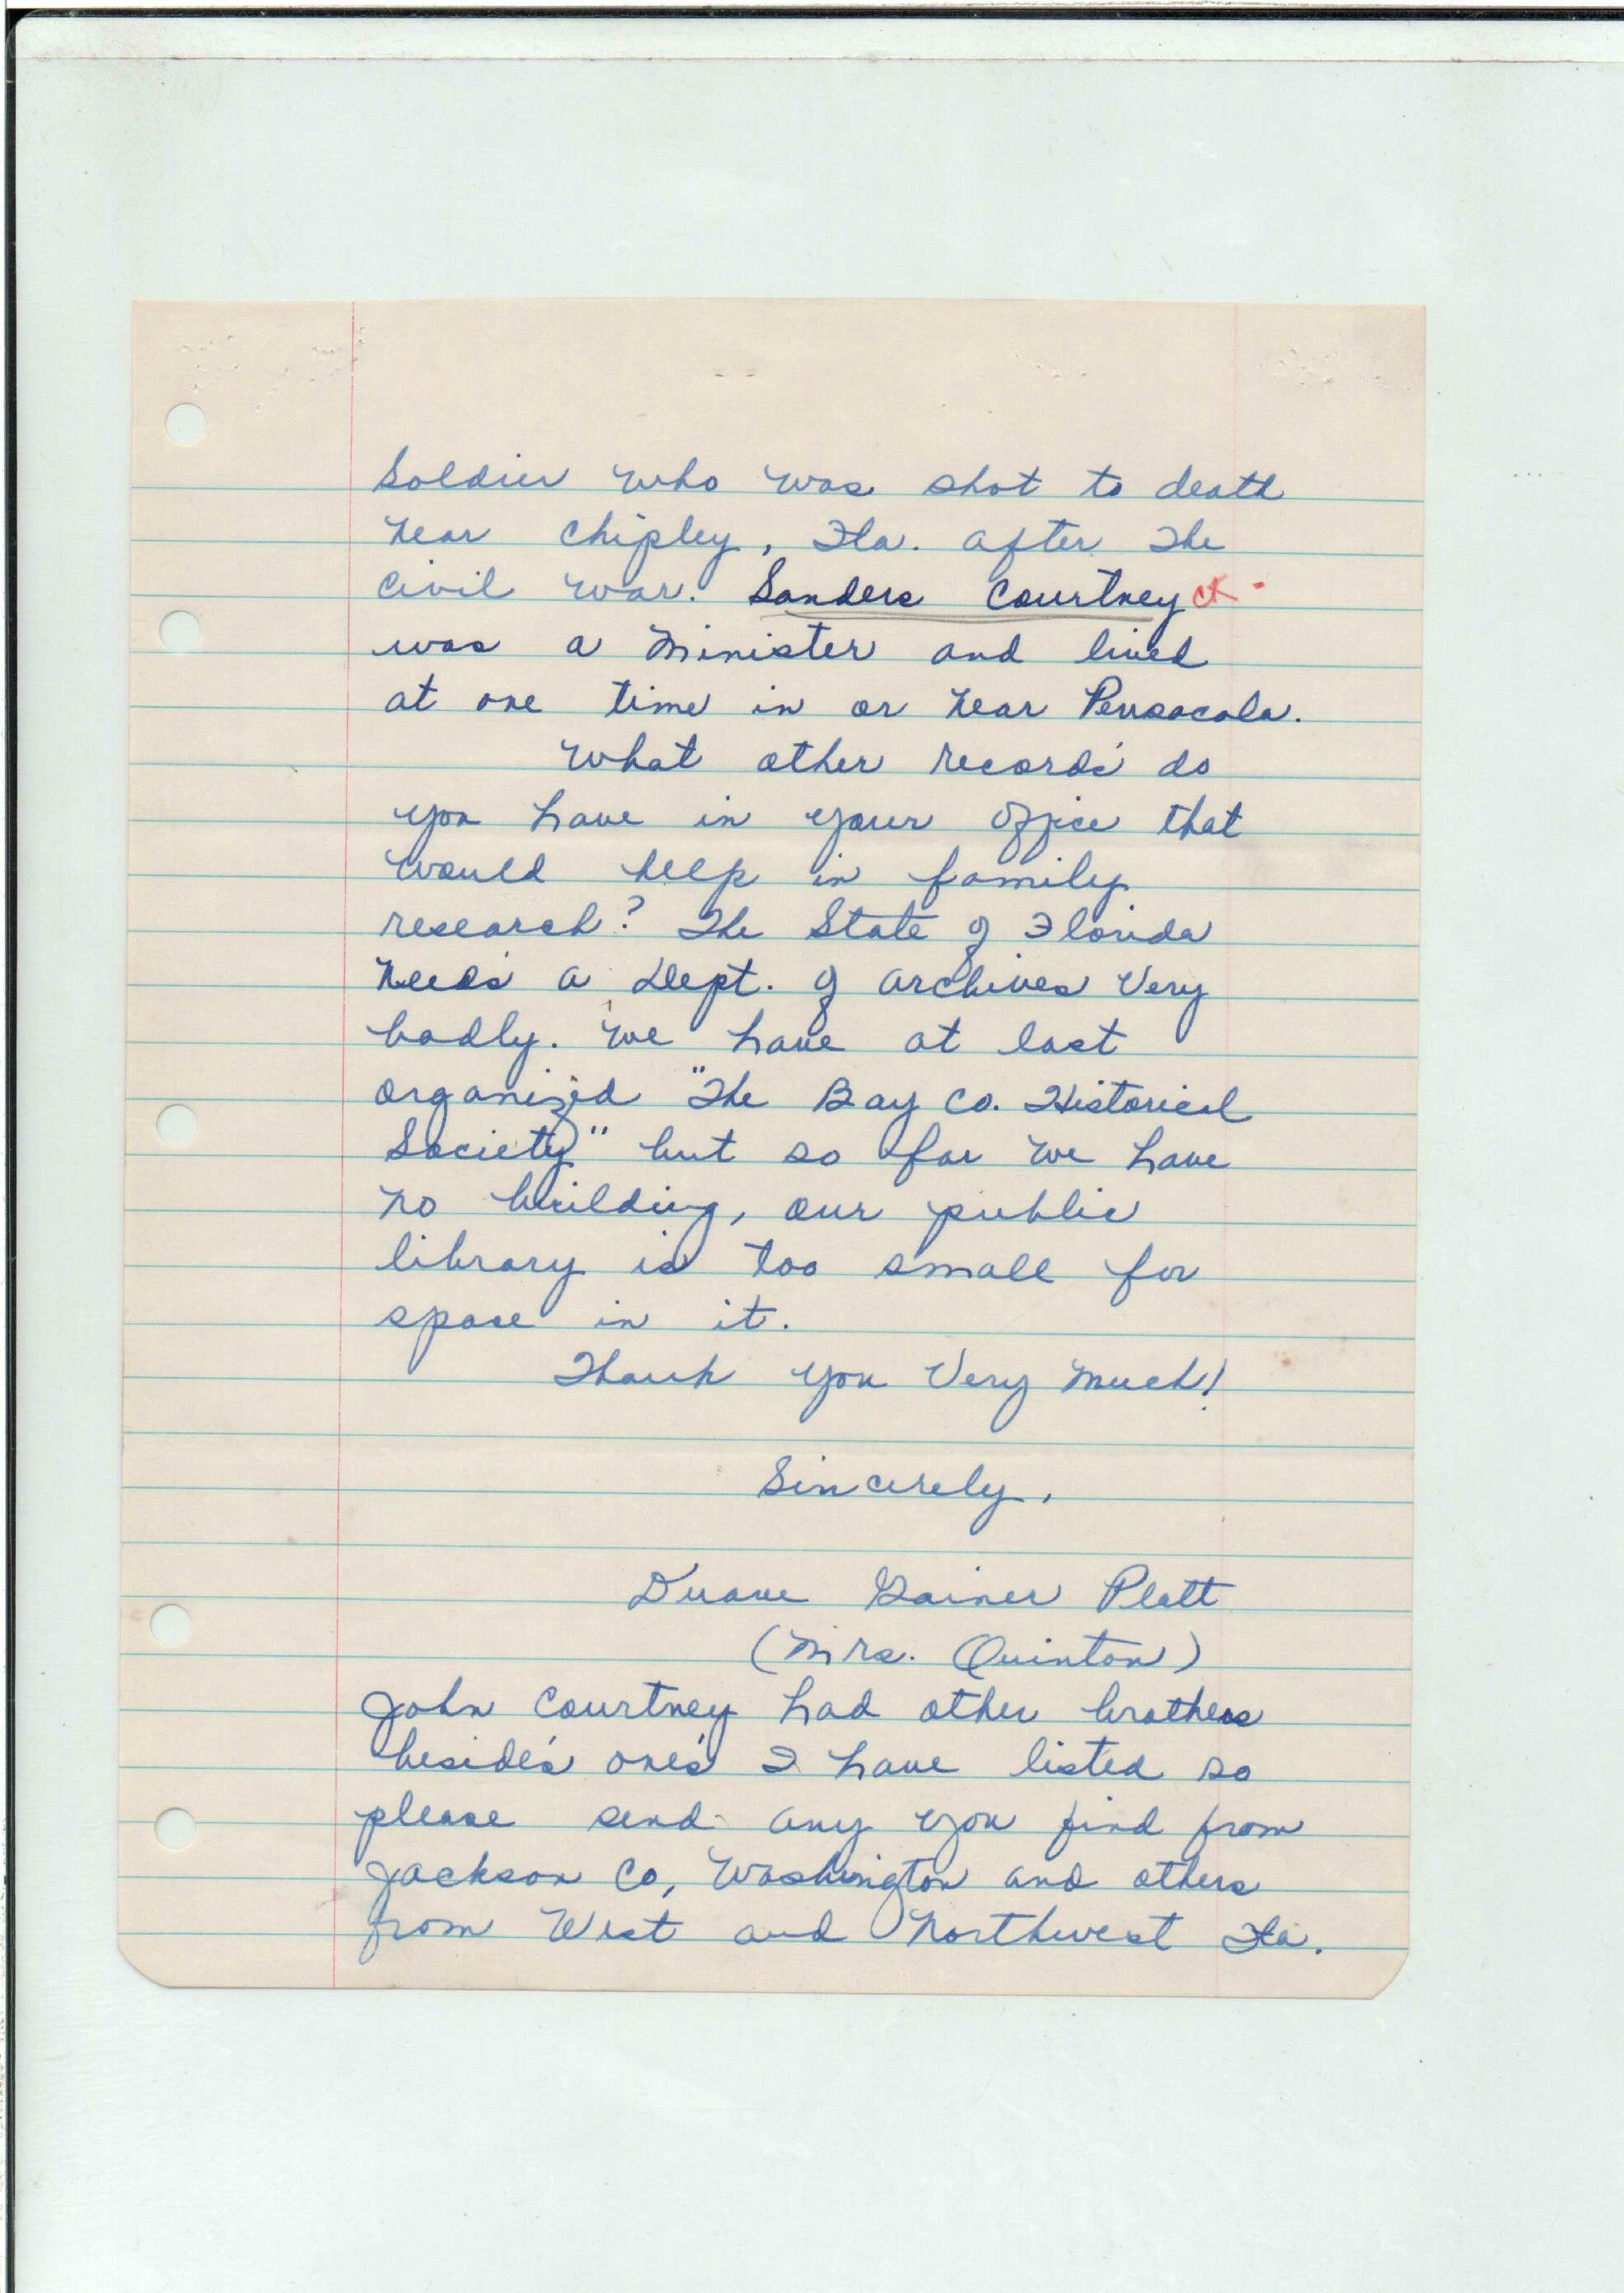 Soldier who was shot to death
near Chipley, Fla. after the
Civil War. Sanders Courtney ck
was a minister and lived
at one time in or near Pensacola.
What other records do
you have in your office that
would help in family
research? The State of Florida
needs a Dept. of archives Very
badly. We have at last
organized "The Bay Co. Historical
Society" but so far we have
no building, our public
library is too small for
space in it.
Thank you Very much!
Sincerely,
Duane Gainer Platt
(Mrs. Quinton)
John Courtney had other brothers
besides ones I have listed so
please send any you find from
Jackson Co, Washington and others
from West and Northwest Fla.